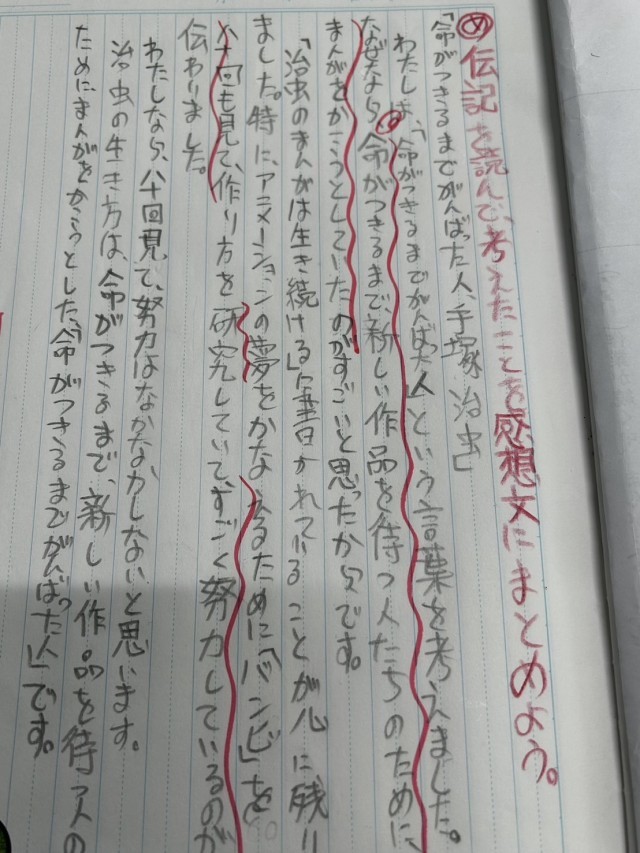 め 伝記を読んで、考えたことを感想文にまとめよう。
「命がつきるまでがんばった人、手塚治虫」
わたしは、「命がつきるまでがんばった人」という言葉を考えました。
なぜなら、命がつきるまで、新しい作品を待つ人たちのために、
まんがをかこうとしていたのがすごいと思ったからです。
「治虫のまんがは生き続ける」に書かれていることが心に残り
ました。特に、アニメーションの夢をかなえるために「バンビ」を
八十回も見て、作り方を研究していて、すごく努力しているのが
伝わりました。
わたしなら、八十回見て、努力はなかなかしないと思います。
治虫の生き方は、命がつきるまで、新しい作品を待つ人の
ためにまんがをかこうとした、「命がつきるまでがんばった人」です。